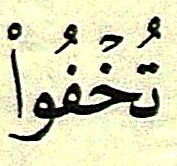 تُخْفُواْ